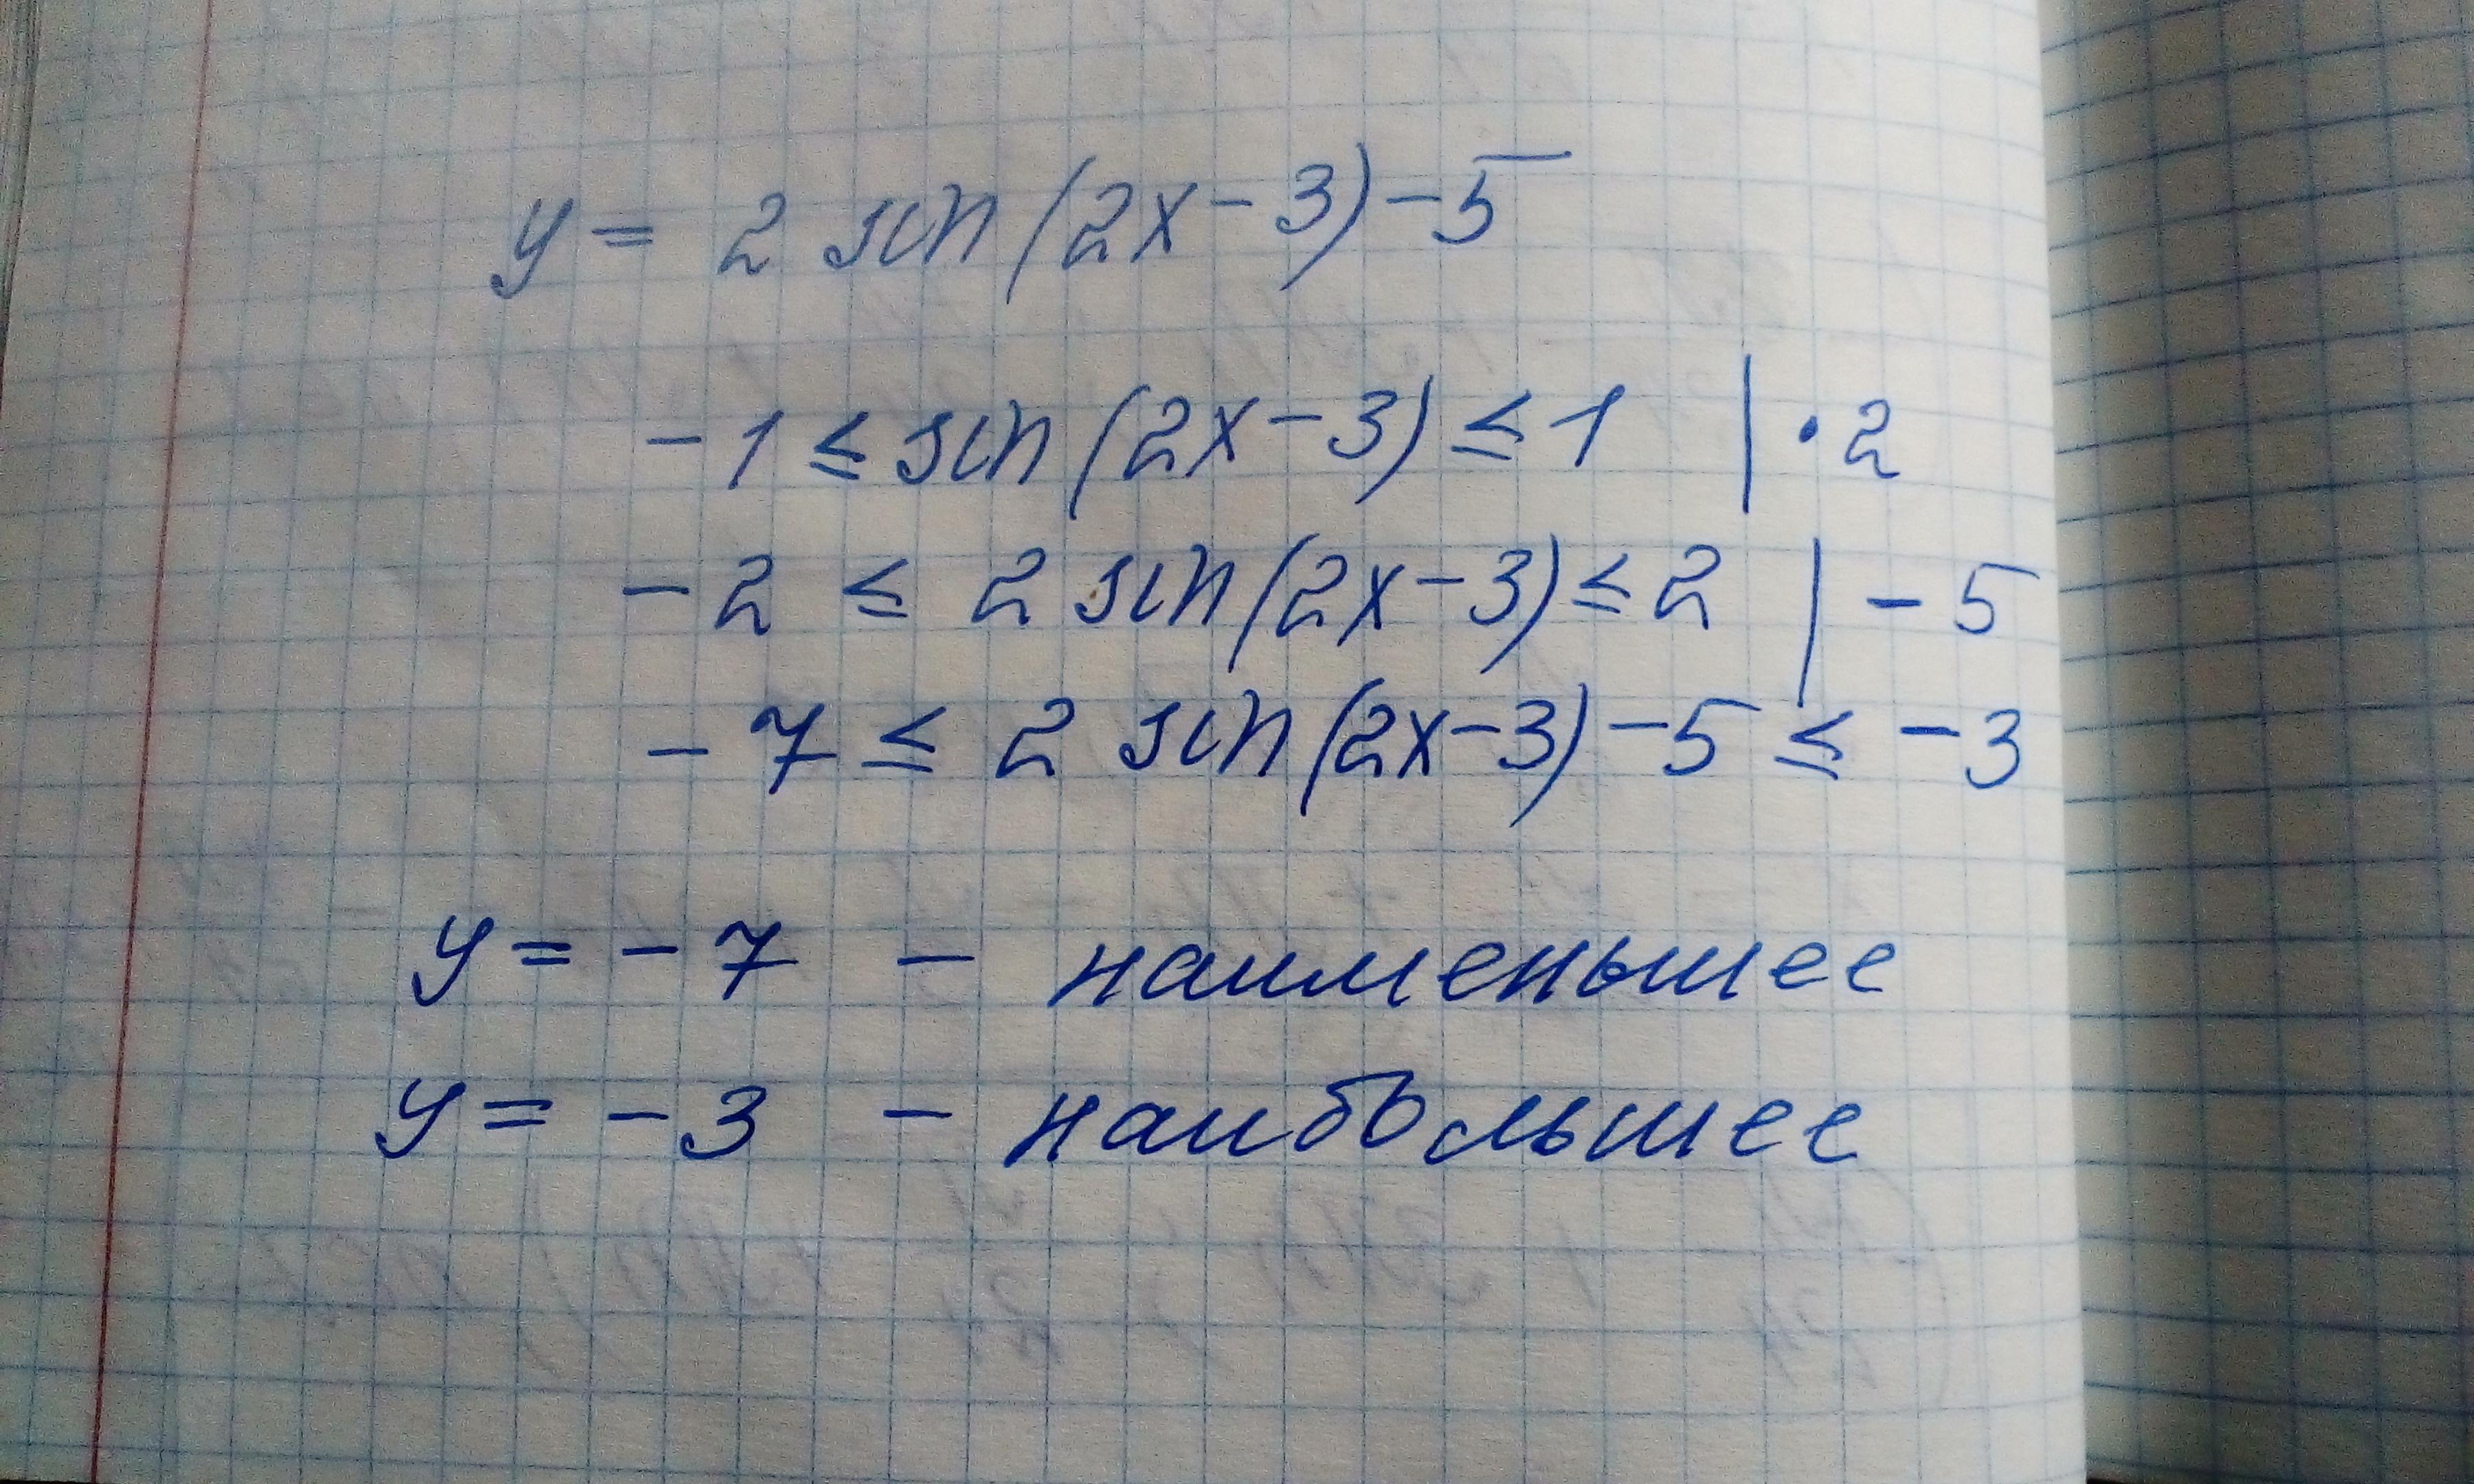 y = 2 sin(2x - 3) - 5
-1 ≤ sin(2x - 3) ≤ 1 | · 2
-2 ≤ 2 sin(2x - 3) ≤ 2 | - 5
-7 ≤ 2 sin(2x - 3) - 5 ≤ -3
y = -7 - наименьшее
y = -3 - наибольшее